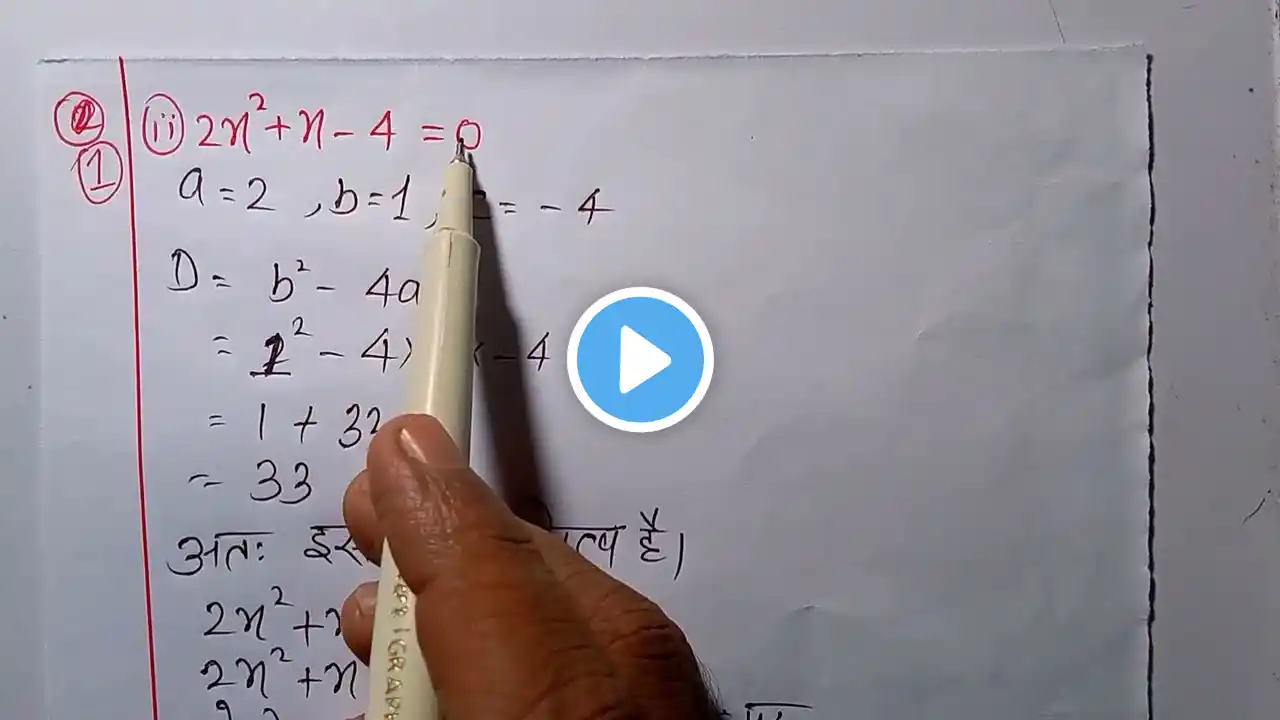 2
(ii) 2x² + x - 4 = 0
1
a = 2 , b = 1 , = - 4
D = b² - 4a
= 1² - 4× × - 4
= 1 + 32
= 33
अतः है।
2x² +
2x² + x